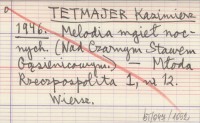 TETMAJER Kazimierz
1946. Melodia mgieł noc-
nych. (Nad Czarnym Stawem
Gąsienicowym.) — Młoda
Rzeczpospolita 1, nr 12.
Wiersz.